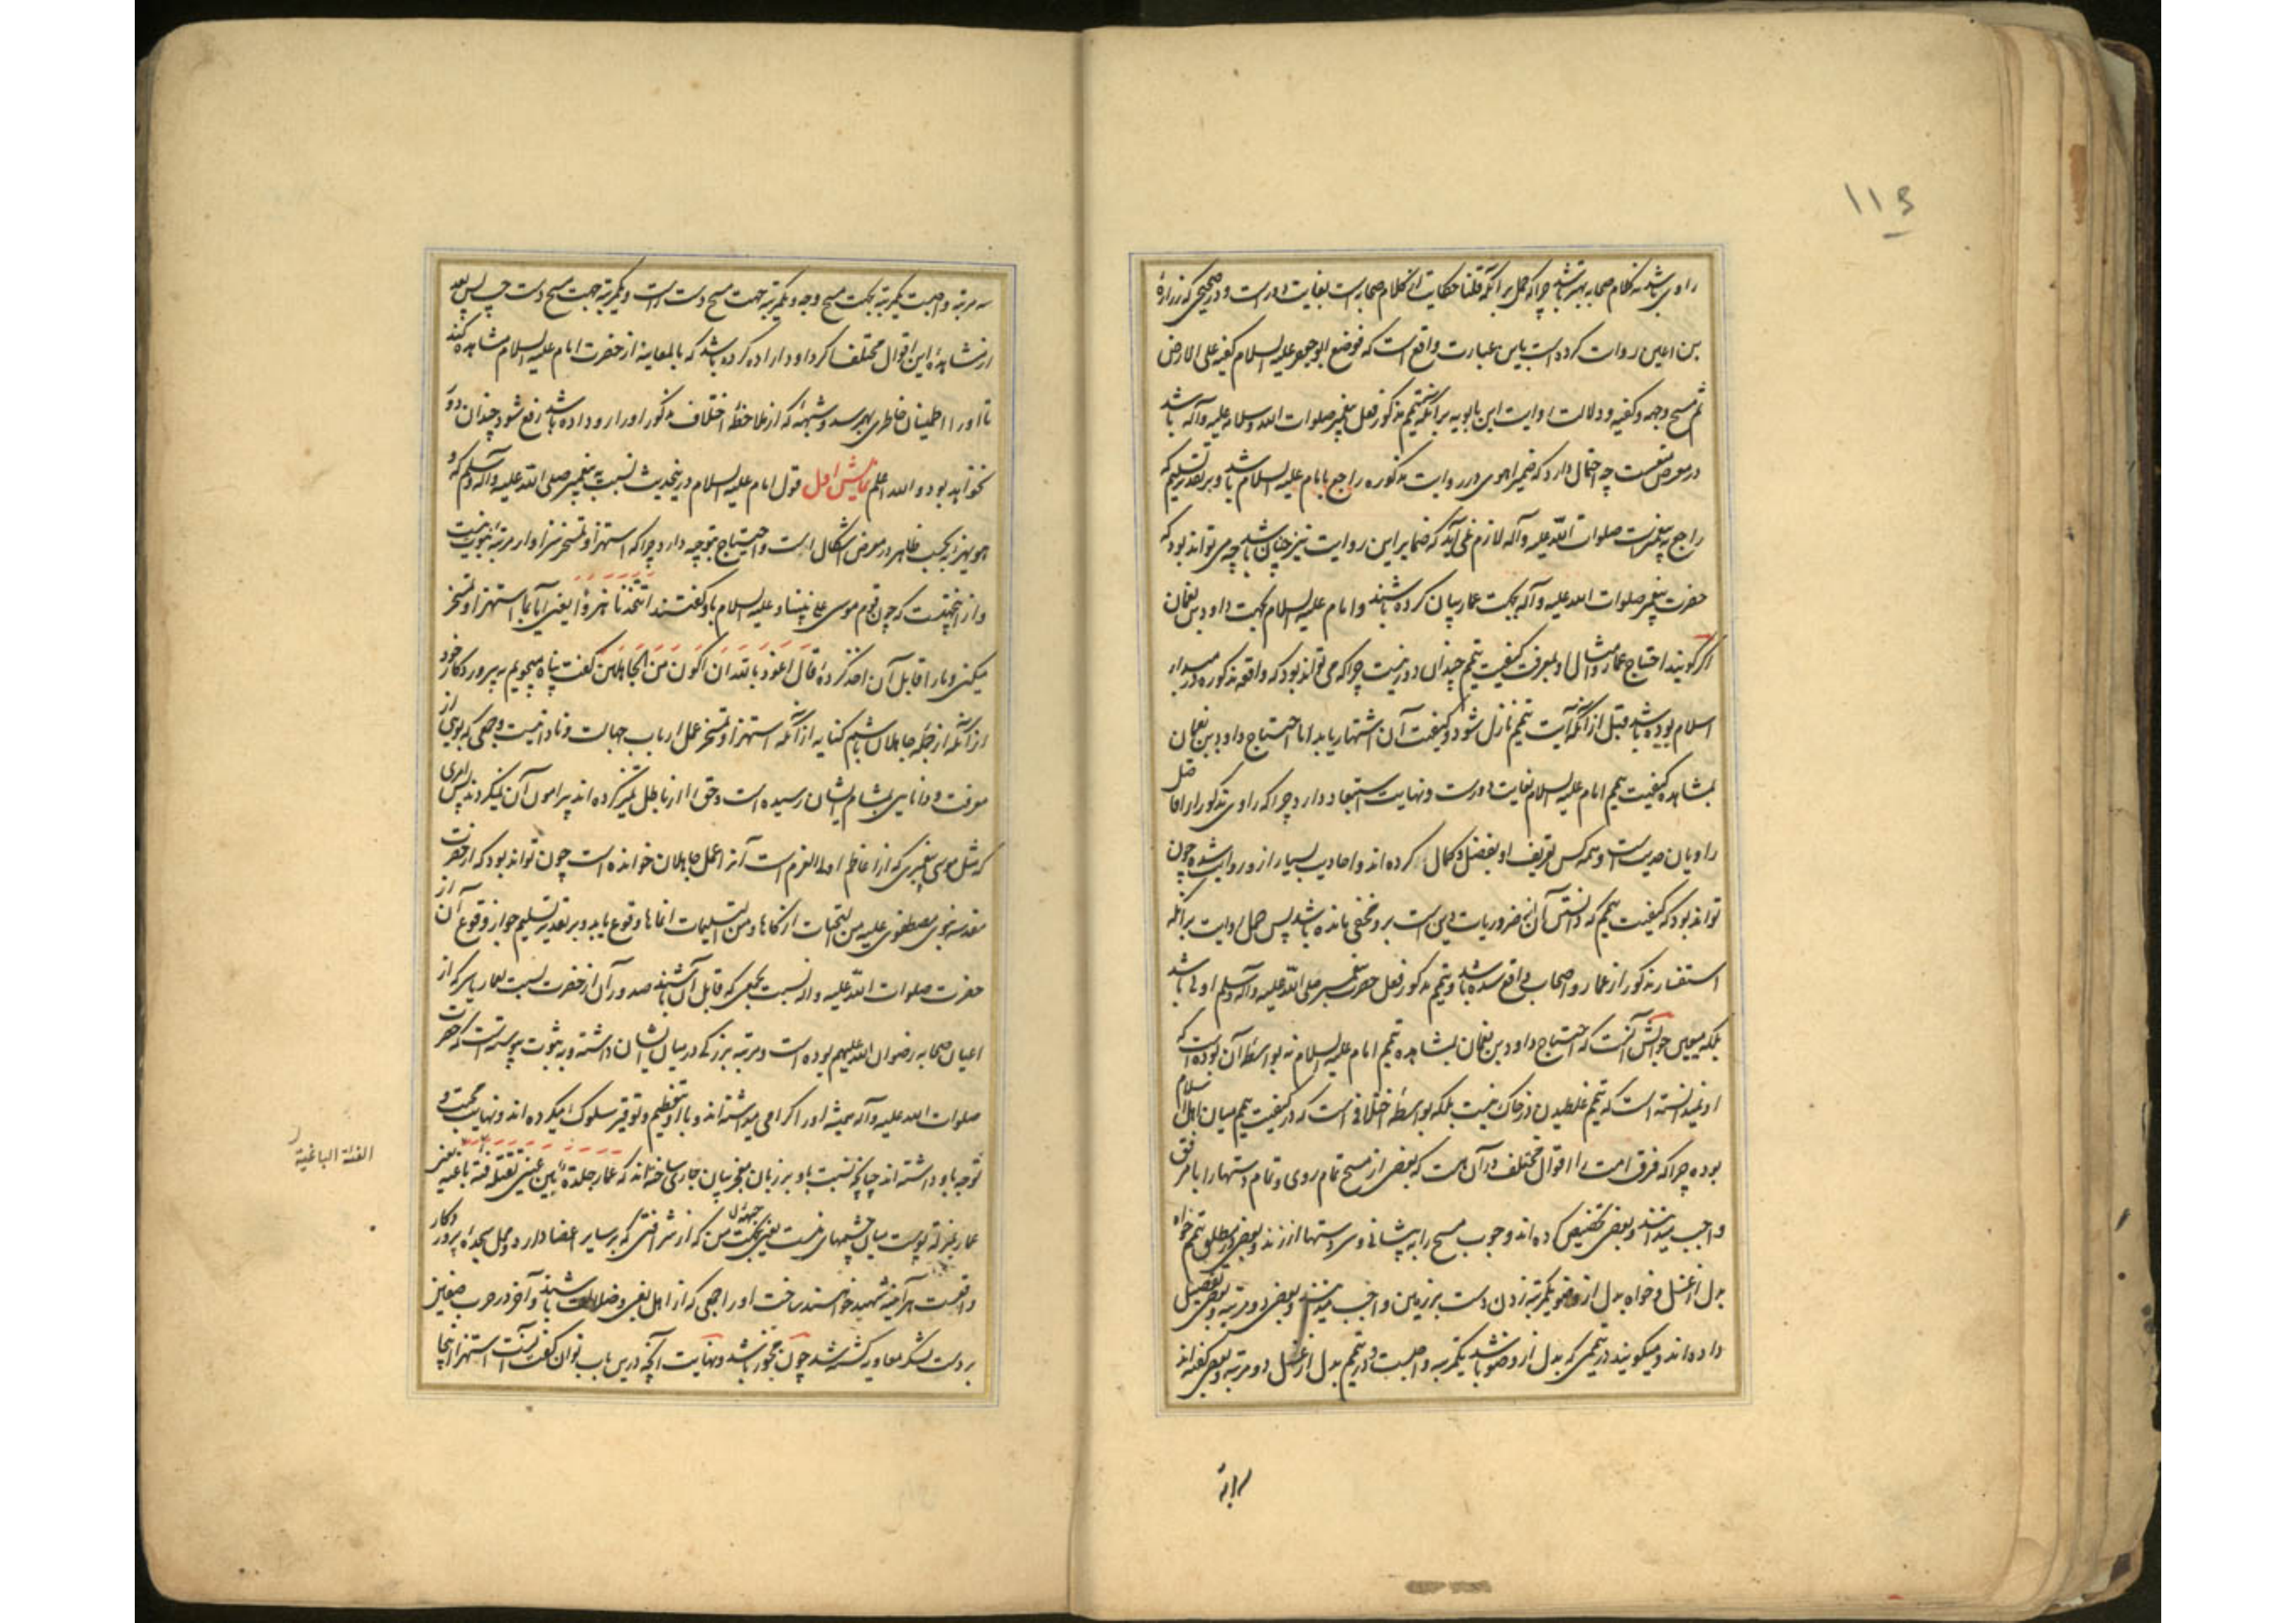 ۱۱۶
راوی باشد نه کلام صحابه بهتر باشد چرا که حمل بر آنکه قلنا حکایت از کلام صحابه است بغایت دور است و در صحیحی که زراره
بن اعین روایت کرده است باین عبارت واقع است که فوضع ابو جعفر علیه السلام کفیه علی الارض
ثم مسح وجهه و کفیه و دلالت روایت ابن بابویه بر آنکه تیمم مذکور فعل پیغمبر صلوات الله و سلامه علیه و آله باشد
در معرض منعست چه احتمال دارد که ضمیر اهوی در روایت مذکوره راجع بامام علیه السلام باشد و بر تقدیر تسلیم که
راجع به پیغمبر است صلوات الله علیه و آله لازم نمی آید که ضمایر این روایت نیز چنان باشد چه می تواند بود که
حضرت پیغمبر صلوات الله علیه و آله بجهت عمار بیان کرده باشند و امام علیه السلام بجهت داود بن نعمان
اگر گویند احتیاج عمار و امثال او بمعرفت کیفیت تیمم چندان دور نیست چرا که می تواند بود که واقعه مذکوره در مبداء
اسلام بوده باشد قبل از آنکه آیت تیمم نازل شود و کیفیت آن اشتهار یابد اما احتیاج داود بن نعمان
بمشاهده کیفیت تیمم امام علیه السلام بغایت دورست و نهایت استبعاد دارد چرا که راوی مذکور از افاضل
راویان حدیث است و همه کس تعریف او بفضل و کمال کرده اند و احادیث بسیار ازو روایت شده چون
تواند بود که کیفیت تیمم که دانستن آن از ضروریات دین است برو مخفی مانده باشد پس حمل روایت بر آنکه
استفسار مذکور از عمار و اصحاب واقع شده باشد و تیمم مذکور فعل حضرت پیغمبر صلی الله علیه و آله و سلم اولی باشد
بلکه متعین جوابش آنست که احتیاج داود بن نعمان بمشاهده تیمم امام علیه السلام نه بواسطه آن بوده است که
او نمیدانسته است که تیمم غلطیدن در خاک نیست بلکه بواسطه اختلافی است که در کیفیت تیمم میان اهل اسلام
بوده چرا که فرق امت را اقوال مختلف در آن هست که بعضی از مسح تمام روی و تمام دستها را با مرفق
واجب میدانند و بعضی تخصیص کرده اند وجوب مسح را به پیشانی و سر دستها از زند و بعضی در مطلق تیمم خواه
بدل از غسل و خواه بدل از وضو یکمرتبه زدن دست بر زمین واجب میدانند و بعضی دو مرتبه و بعضی تفصیل
داده اند و میگویند در تیممی که بدل از وضو باشد یکمرتبه واجبست و در تیمم بدل از غسل دو مرتبه و بعضی گفته اند
سه مرتبه واجبست یکمرتبه بجهت مسح وجه و یکمرتبه جهت مسح دست راست و یکمرتبه جهت مسح دست چپ پس بعد
از مشاهده این اقوال مختلف اگر داود اراده کرده باشد که بالمعاینه از حضرت امام علیه السلام مشاهده کند
تا او را اطمینان خاطری بهم رسد و شبهه که از ملاحظه اختلاف مذکور او را رو داده باشد رفع شود چندان دور
نخواهد بود والله اعلم نمایش اول قول امام علیه السلام درینحدیث نسبت به پیغمبر صلی الله علیه و آله و سلم که و
هو یهزء به بحسب ظاهر در معرض اشکال است و احتیاج بتوجیه دارد چرا که استهزا و تمسخر سزاوار مرتبه نبوت نیست
و از اینجهتست که چون قوم موسی علی نبینا و علیه السلام باو گفتند اتتخذنا هزوا یعنی آیا بما استهزا و تمسخر
میکنی و ما را قابل آن اخذ کرده قال اعوذ بالله ان اکون من الجاهلین گفت پناه میجویم به پروردگار خود
از آنکه از جمله جاهلان باشم کنایه از آنکه استهزا و تمسخر عمل ارباب جهالت و نادانیست و جمعی که بوی از
معرفت و دانایی بمشام ایشان رسیده است و حق را از باطل تمیز کرده اند پیرامون آن نمیگردند پس امری
که مثل موسی پیغمبری که از اعاظم اولوا العزم است آنرا عمل جاهلان خوانده است چون تواند بود که از حضرت
مقدسه نبوی مصطفوی علیه من التحیات ازکاها و من التسلیمات انماها وقوع یابد و بر تقدیر تسلیم جواز وقوع آن از آن
حضرت صلوات الله علیه و آله نسبت بجمعی که قابل آن باشند صدور آن از حضرت نسبت بعمار یاسر که از
اعیان صحابه رضوان الله علیهم بوده است و مرتبه بزرگی در میان ایشان داشته و به ثبوت پیوسته است که حضرت
صلوات الله علیه و آله همیشه او را گرامی میداشته اند و با او بتعظیم و توقیر سلوک میکرده اند و نهایت محبت و
توجه باو داشته اند چنانچه نسبت باو بر زبان معجز بیان جاری ساخته اند که عمار جلدة بین عینی تقتله فئة باغیة یعنی
عمار بمنزله پوست میان چشمهای منست یعنی بجهت من که از شرافتی که بر سایر اعضا دارد و محل سجده پروردگار
واقعست هر آینه شهید خواهند ساخت او را جمعی که از اهل بغی و ضلالت باشند و آخر در حرب صفین
بر دست لشکر معاویه کشته شد چون مجوز باشد و نهایت آنچه درین باب توان گفت آنست که استهزا اینجا
جبهه
الفئة الباغیة